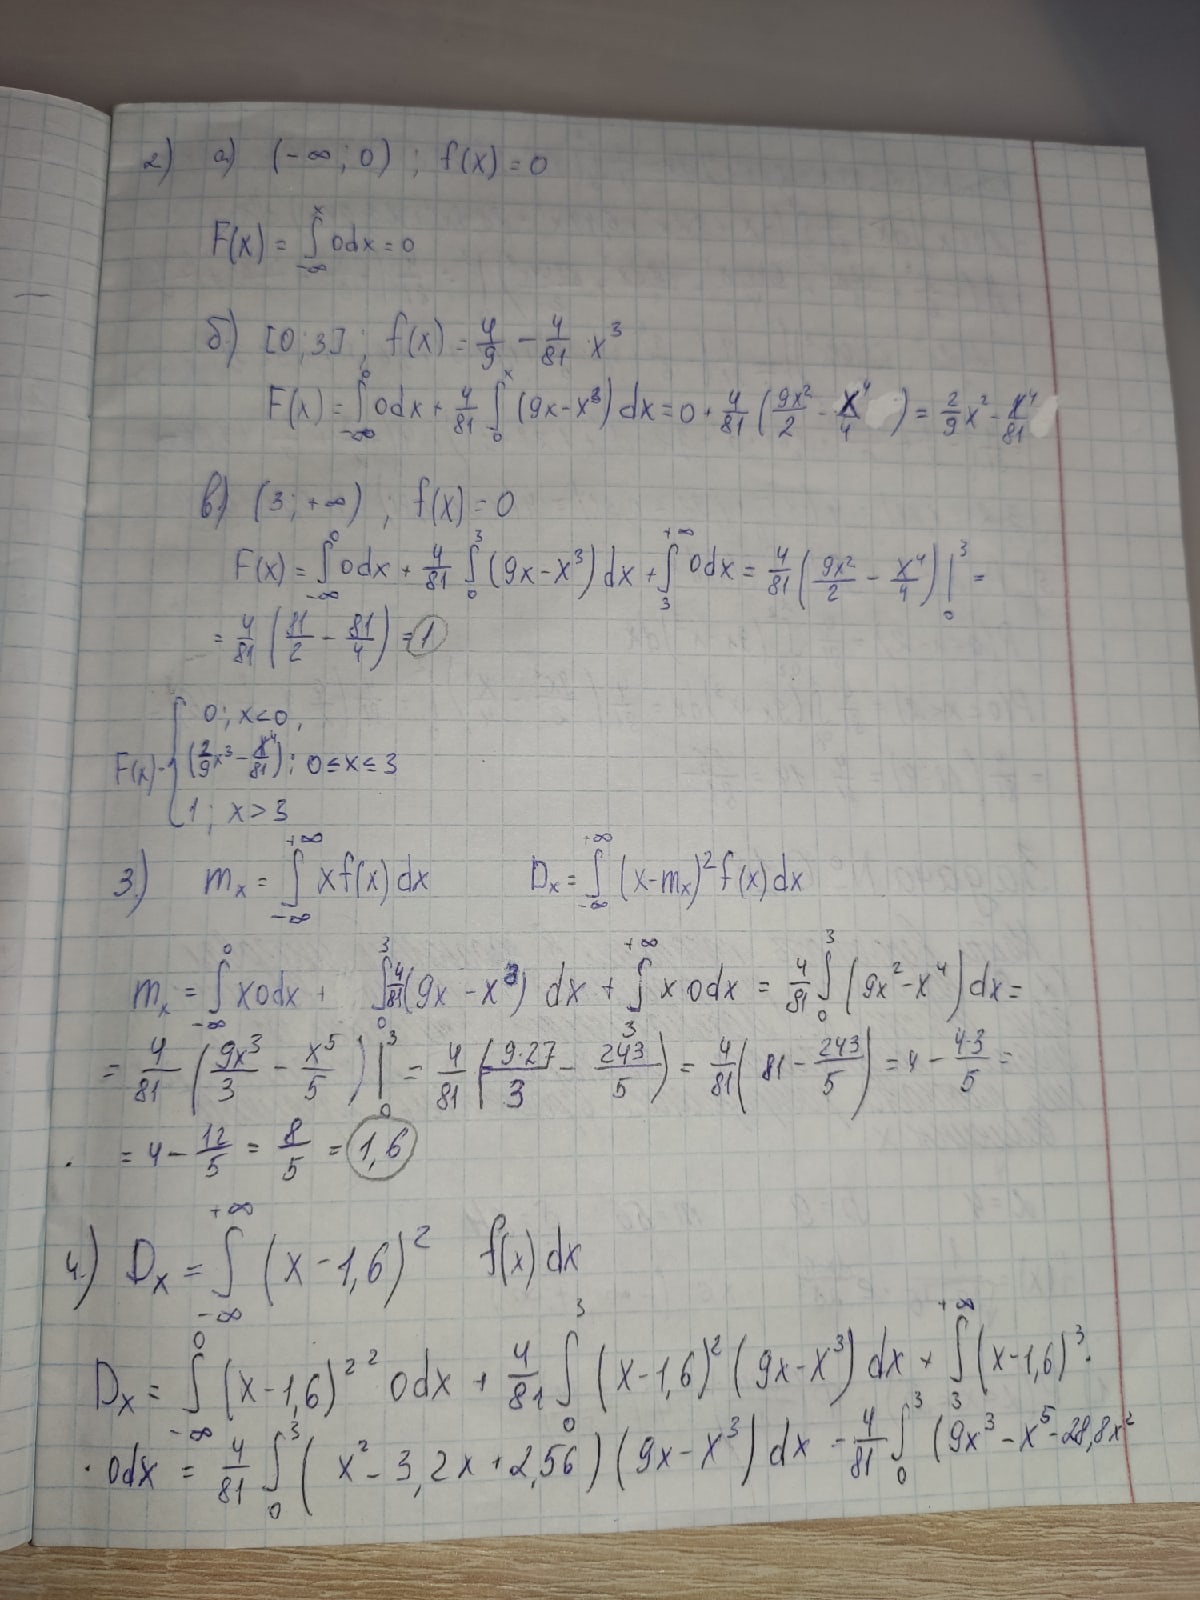 2) a) (-∞; 0) ; f(x) = 0
F(x) = ∫_{-∞}^{x} 0dx = 0
б) [0; 3] ; f(x) = 4/9 - 4/81 x³
F(x) = ∫_{-∞}^{0} 0dx + 4/81 ∫_{0}^{x} (9x - x³) dx = 0 + 4/81 (9x²/2 - x⁴/4) = 2/9 x² - x⁴/81
в) (3; +∞) ; f(x) = 0
F(x) = ∫_{-∞}^{0} 0dx + 4/81 ∫_{0}^{3} (9x - x³) dx + ∫_{3}^{+∞} 0dx = 4/81 (9x²/2 - x⁴/4) |_{0}^{3} =
= 4/81 (81/2 - 81/4) = 1
0; x<0,
F(x) = { (2/9 x³ - x⁴/81); 0 ≤ x ≤ 3
1; x > 3
3.) mₓ = ∫_{-∞}^{+∞} x f(x) dx Dₓ = ∫_{-∞}^{+∞} (x - mₓ)² f(x) dx
mₓ = ∫_{-∞}^{0} x0dx + ∫_{0}^{3} 4/81 (9x - x³) dx + ∫_{3}^{+∞} x0dx = 4/81 ∫_{0}^{3} (9x² - x⁴) dx =
= 4/81 (9x³/3 - x⁵/5) |_{0}^{3} = 4/81 (9·27/3 - 243/5) = 4/81 (81 - 243/5) = 4 - 4·3/5 =
= 4 - 12/5 = 8/5 = 1,6
4.) Dₓ = ∫_{-∞}^{+∞} (x - 1,6)² f(x) dx
Dₓ = ∫_{-∞}^{0} (x - 1,6)² ² 0dx + 4/81 ∫_{0}^{3} (x - 1,6)² (9x - x³) dx + ∫_{3}^{+∞} (x - 1,6)³ ·
· 0dx = 4/81 ∫_{0}^{3} (x² - 3,2x + 2,56) (9x - x³) dx = 4/81 ∫_{0}^{3} (9x³ - x⁵ - 28,8x²